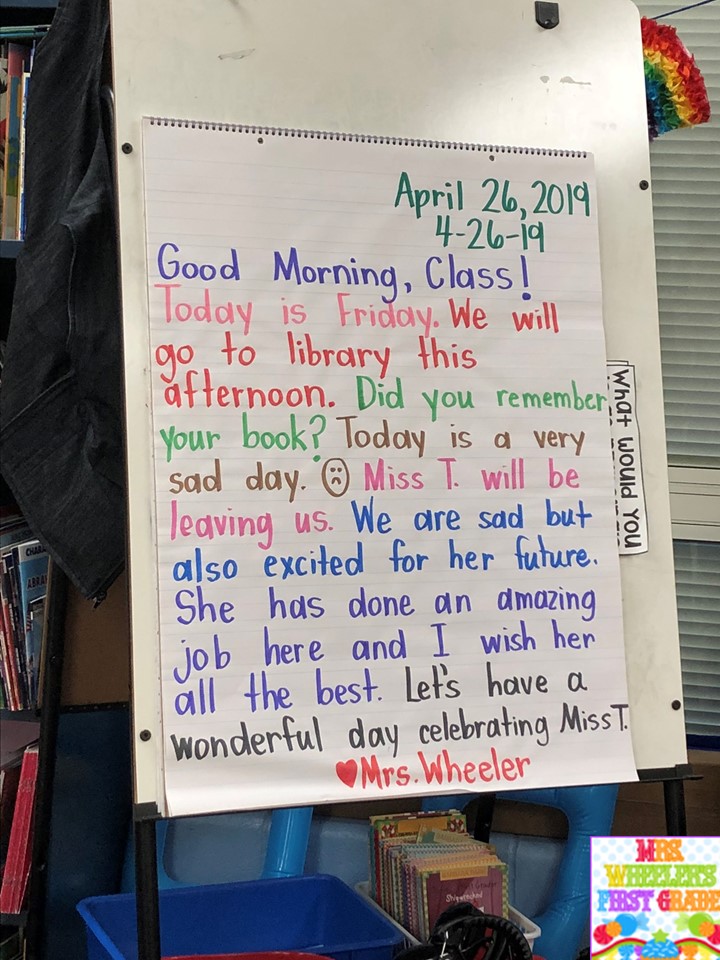 April 26, 2019
4-26-19
Good Morning, Class!
Today is Friday. We will
go to library this
afternoon. Did you remember
your book? Today is a very
sad day. Miss T. will be
leaving us. We are sad but
also excited for her future.
She has done an amazing
job here and I wish her
all the best. Let's have a
wonderful day celebrating Miss T.
Mrs. Wheeler
What would you
MRS.
WHEELER'S
FIRST GRADE